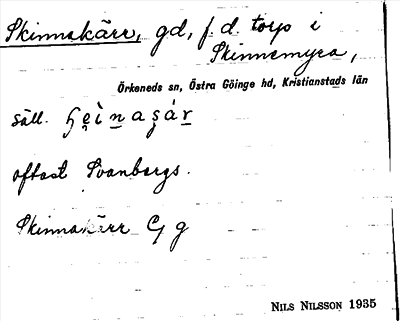 Skinnakärr, gd, f.d. torp i
Skinnemyra,
Örkeneds sn, Östra Göinge hd, Kristianstads län
säll.
oftast Svanbergs.
Skinnakärr G g
NILS NILSSON 1935